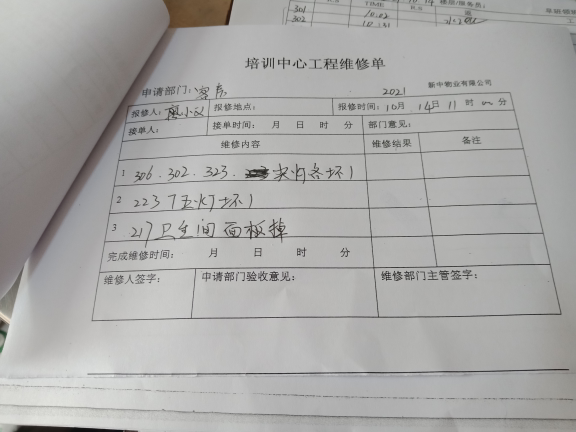 301 10.02
302 10.31
培训中心工程维修单
申请部门：客房 2021 新中物业有限公司
报修人： 报修地点： 报修时间：10月14日11时00分
接单人： 接单时间： 月 日 时 分 部门意见：
维修内容 维修结果 备注
1 306.302.323. 灯各坏1
2 223 灯坏1
3 217卫生间面板掉
完成维修时间： 月 日 时 分
维修人签字： 申请部门验收意见： 维修部门主管签字：